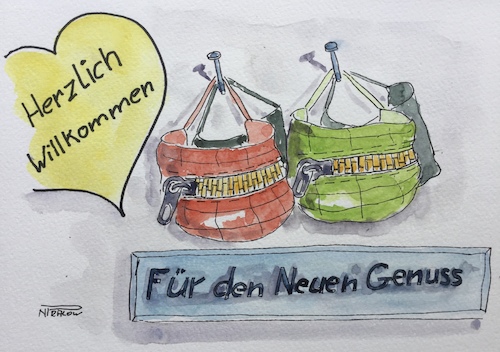 Herzlich
Willkommen
Für den Neuen Genuss